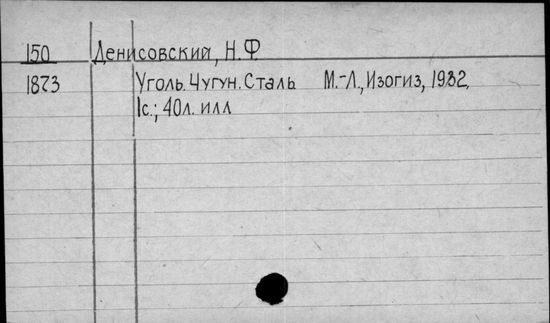 150 Денисовский, Н.Ф.
1873 Уголь. Чугун. Сталь М.-Л., Изогиз, 1932.
1с.; 40л. илл